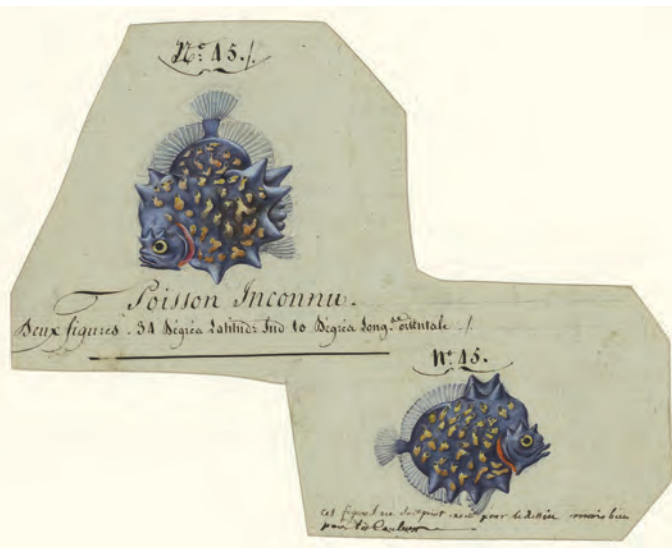 N.º 45./.
Poisson Inconnu.
Deux figures. 34 Dégréa Latitud: Sud 10 Dégréa Long.de orientale ./.
N.º 45.
cet figure ne doit point pour le dessin mais bien
pour les Couleurs